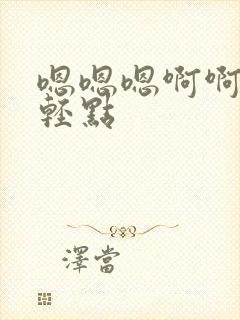 嗯嗯嗯啊啊
輕點
澤當